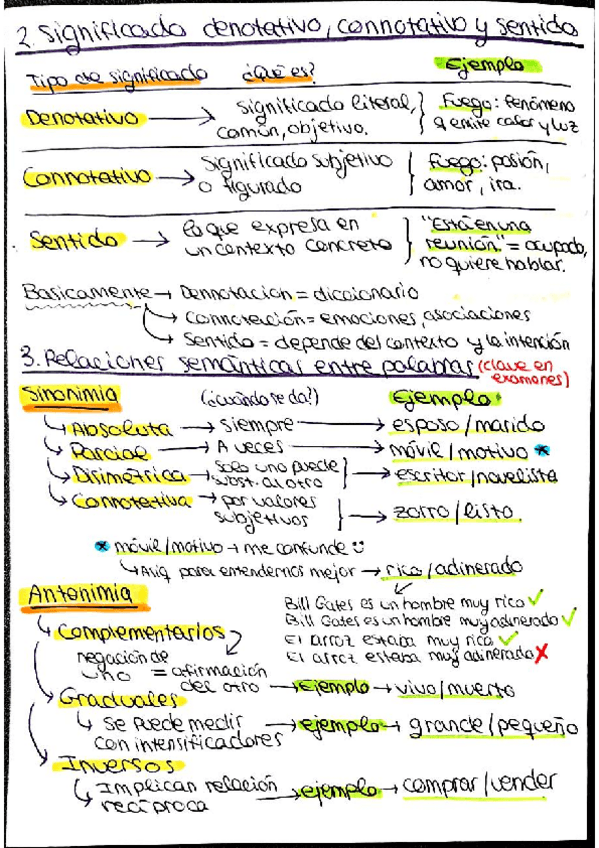 2. Significado denotativo, connotativo y sentido
Tipo de significado ¿Qué es? Ejemplo
Denotativo → significado literal, común, objetivo. Fuego: fenómeno q emite calor y luz
Connotativo → significado subjetivo o figurado Fuego: pasión, amor, ira.
Sentido → lo que expresa en un contexto concreto "Está en una reunión." = ocupado, no quiere hablar.
Basicamente → Dennotación = diccionario
→ connotación = emociones, asociaciones
→ Sentido = depende del contexto y la intención
3. Relaciones semánticas entre palabras (clave en exámenes)
Sinonimia (¿cuándo se da?) Ejemplo:
→ Absoluta → siempre → esposo / marido
→ Parcial → A veces → móvil / motivo *
→ Disimétrica → solo uno puede subst. al otro → escritor / novelista
→ Connotativa → por valores subjetivos → zorro / listo.
* móvil / motivo → me confunde
→ Aiiq para entendernos mejor → rico / adinerado
Bill Gates es un hombre muy rico ✓
Bill Gates es un hombre muy adinerado ✓
El arroz estaba muy rico ✓
El arroz estaba muy adinerado ✗
Antonimia
→ Complementarios
negación de uno = afirmación del otro → Ejemplo → vivo / muerto
→ Graduales
→ se puede medir con intensificadores → ejemplo → grande / pequeño
→ Inversos
→ Implican relación recíproca → ejemplo → comprar / vender